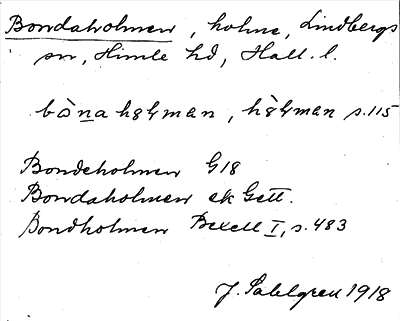 Bondaholmen, holme, Lindbergs
sn, Himle hd, Hall. l.
bòna hɞɫman, hɞ̀ɫman s. 115
Bondeholmen G18
Bondaholmen ek Gett.
Bondholmen Bexell I, s. 483
J. Sahlgren 1918